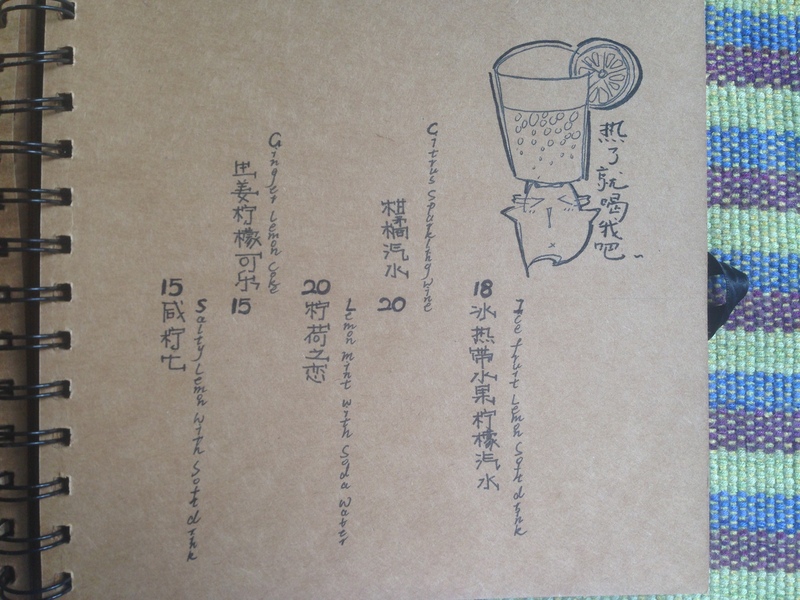 热了就喝我吧~
Ice fruit Lemon Soft drink
18 冰热带水果柠檬汽水
Citrus Sparkling wine
柑橘汽水 20
Lemon mint with Soda water
20 柠荷之恋
Ginger Lemon Coke
姜柠檬可乐 15
Salty Lemon with Soft drink
15 咸柠七